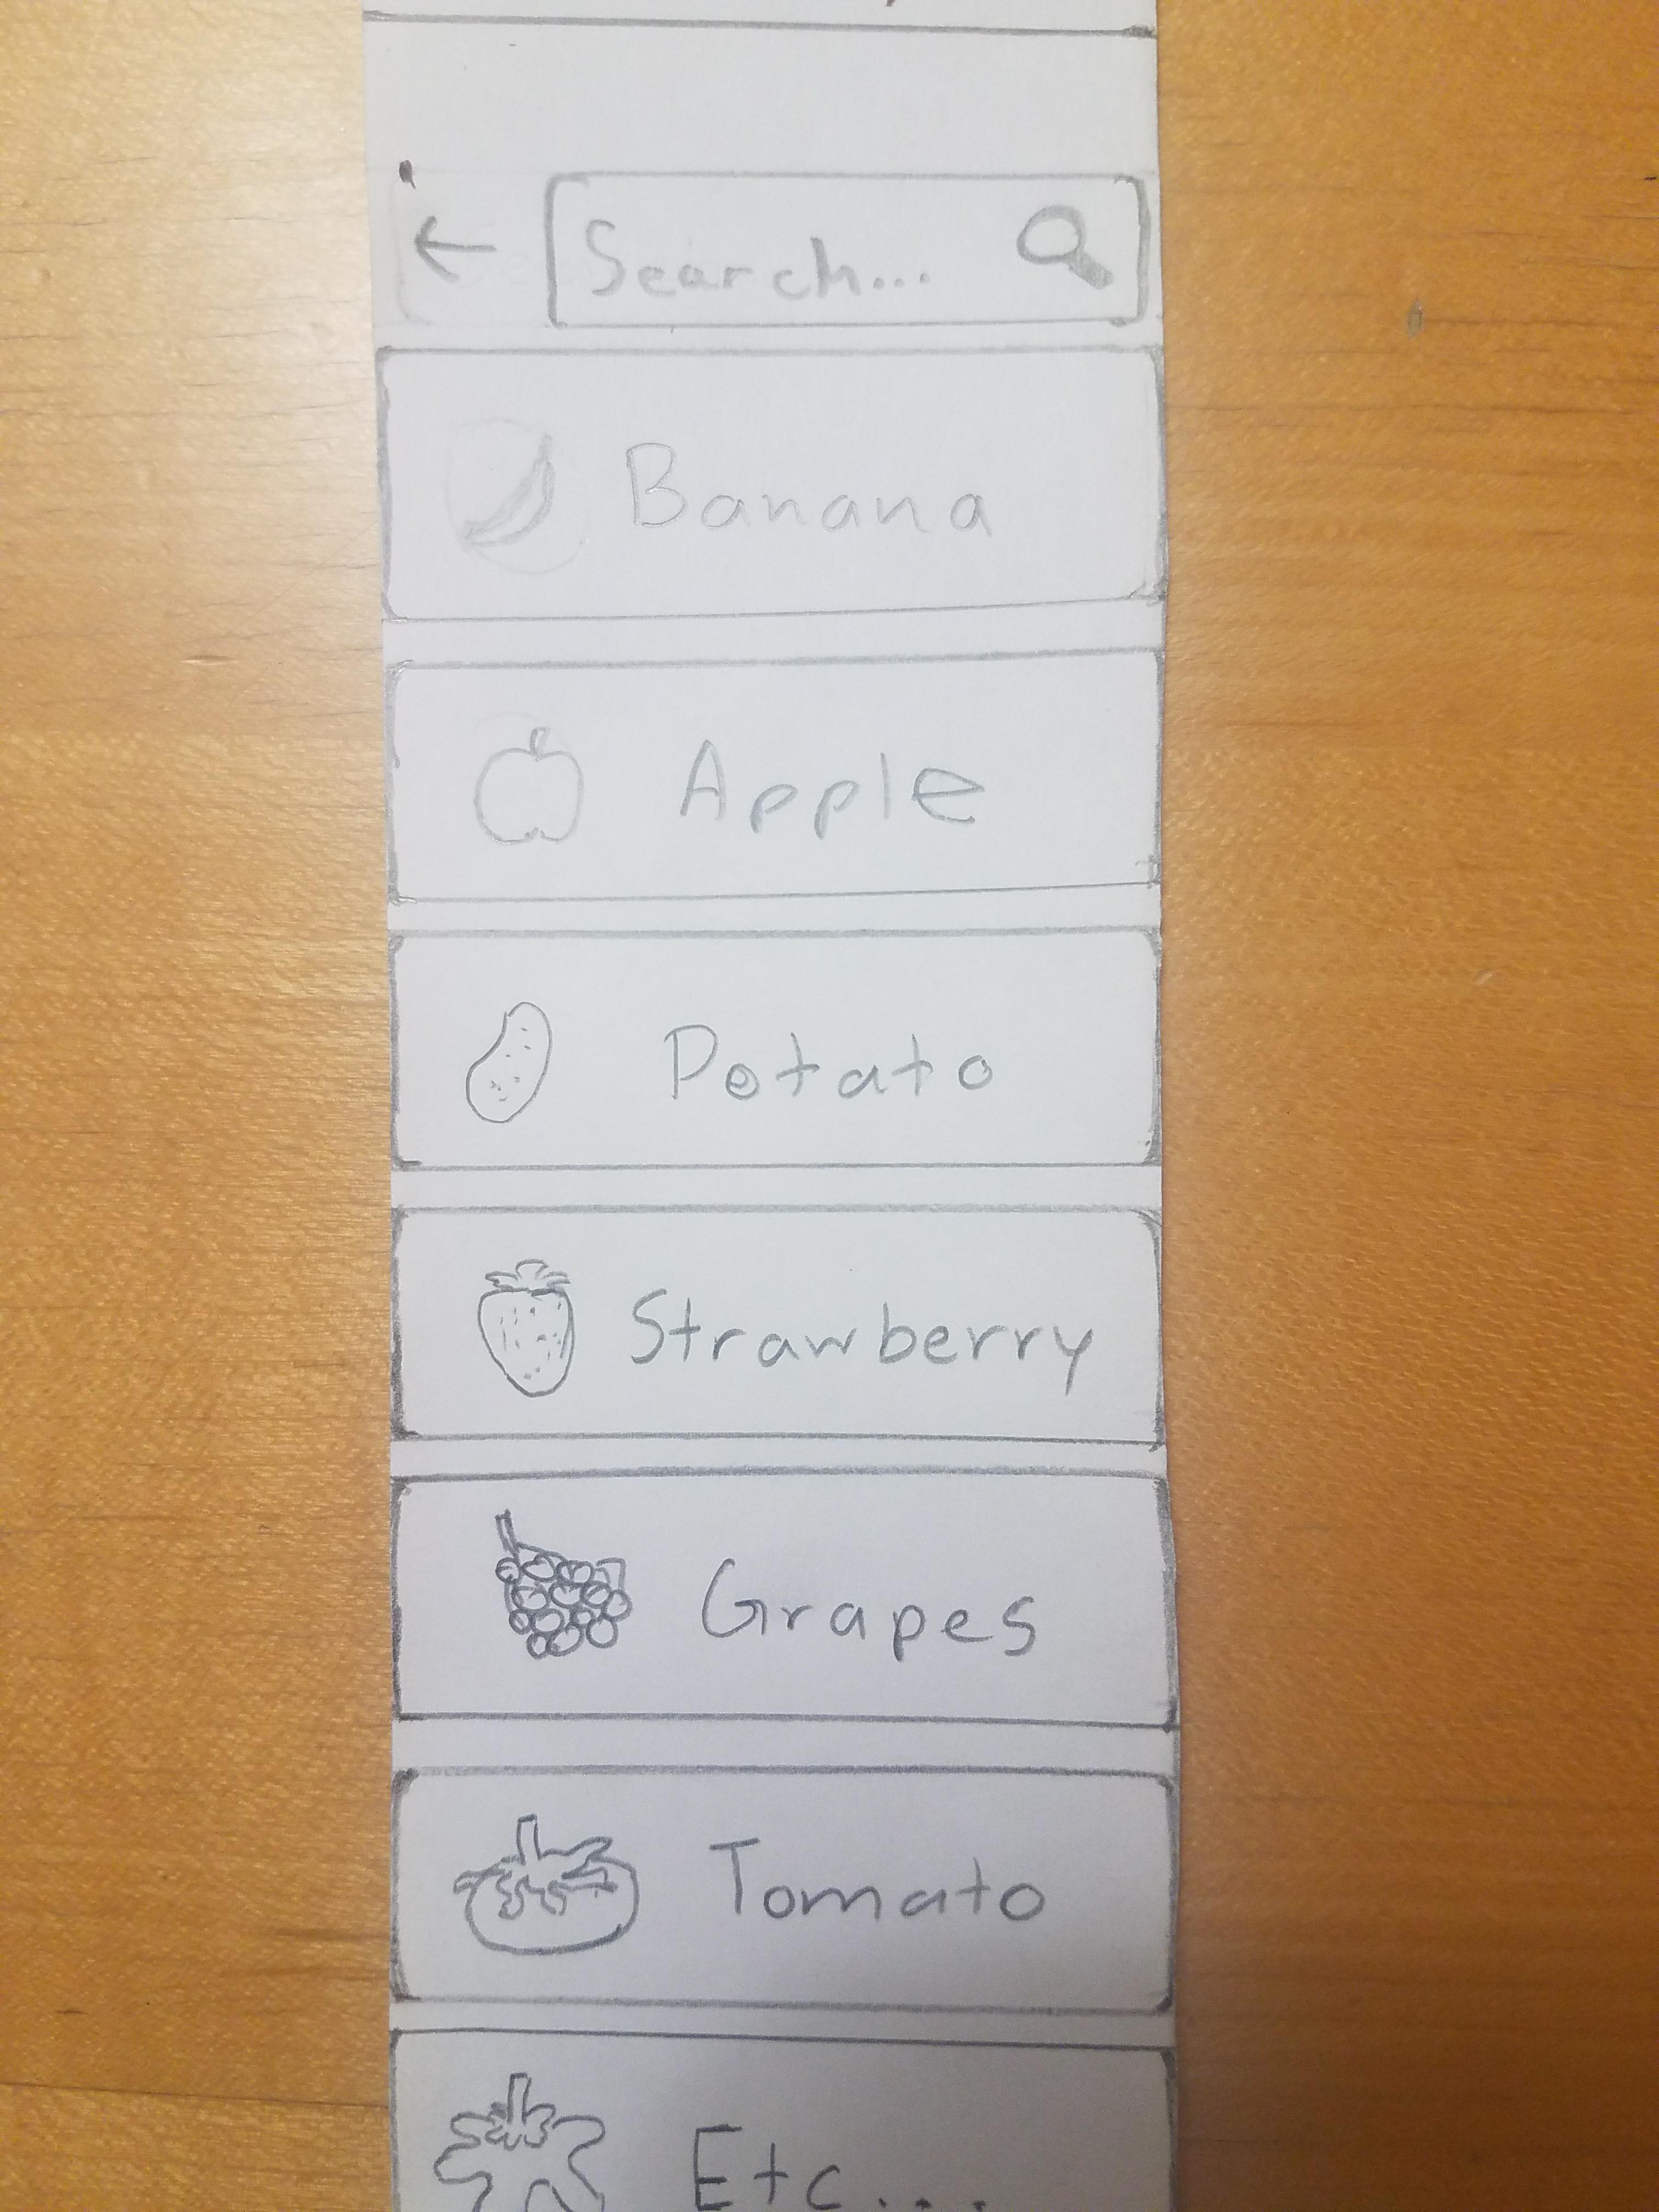 Search...
Banana
Apple
Potato
Strawberry
Grapes
Tomato
Etc....